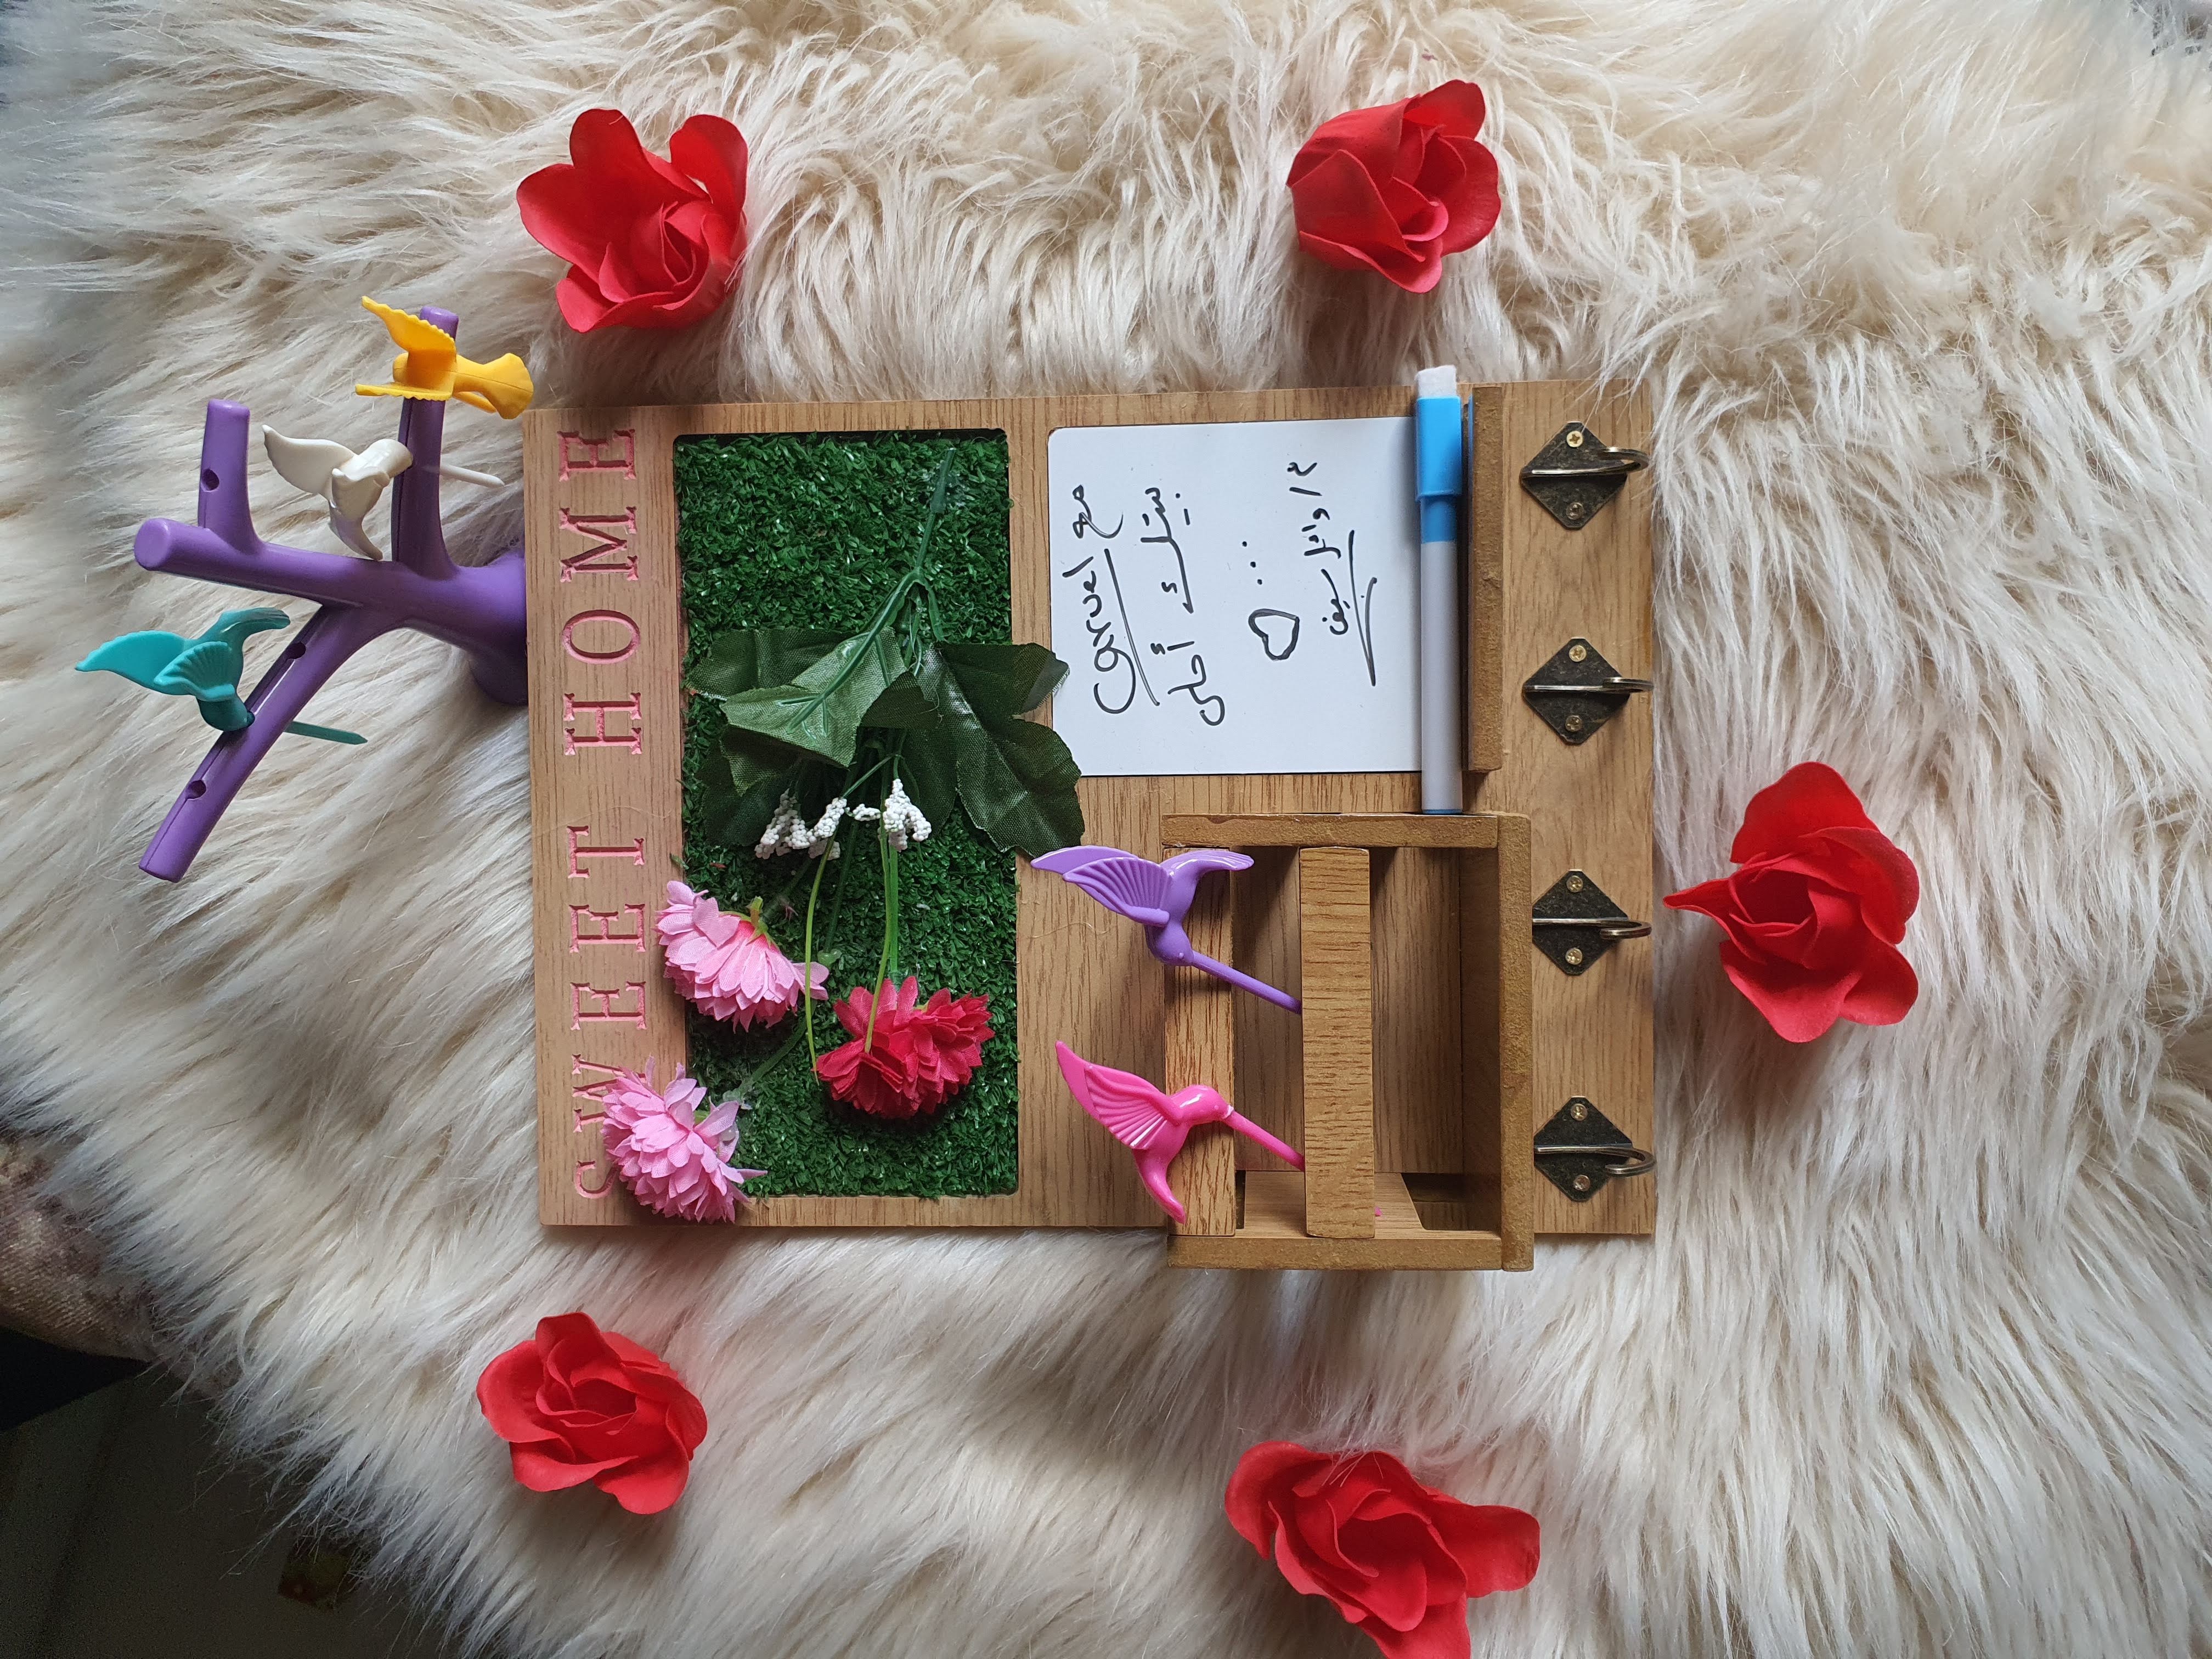 SWEET HOME
مع Carvel
بيتك أحلى
...
م/ وائل سيف